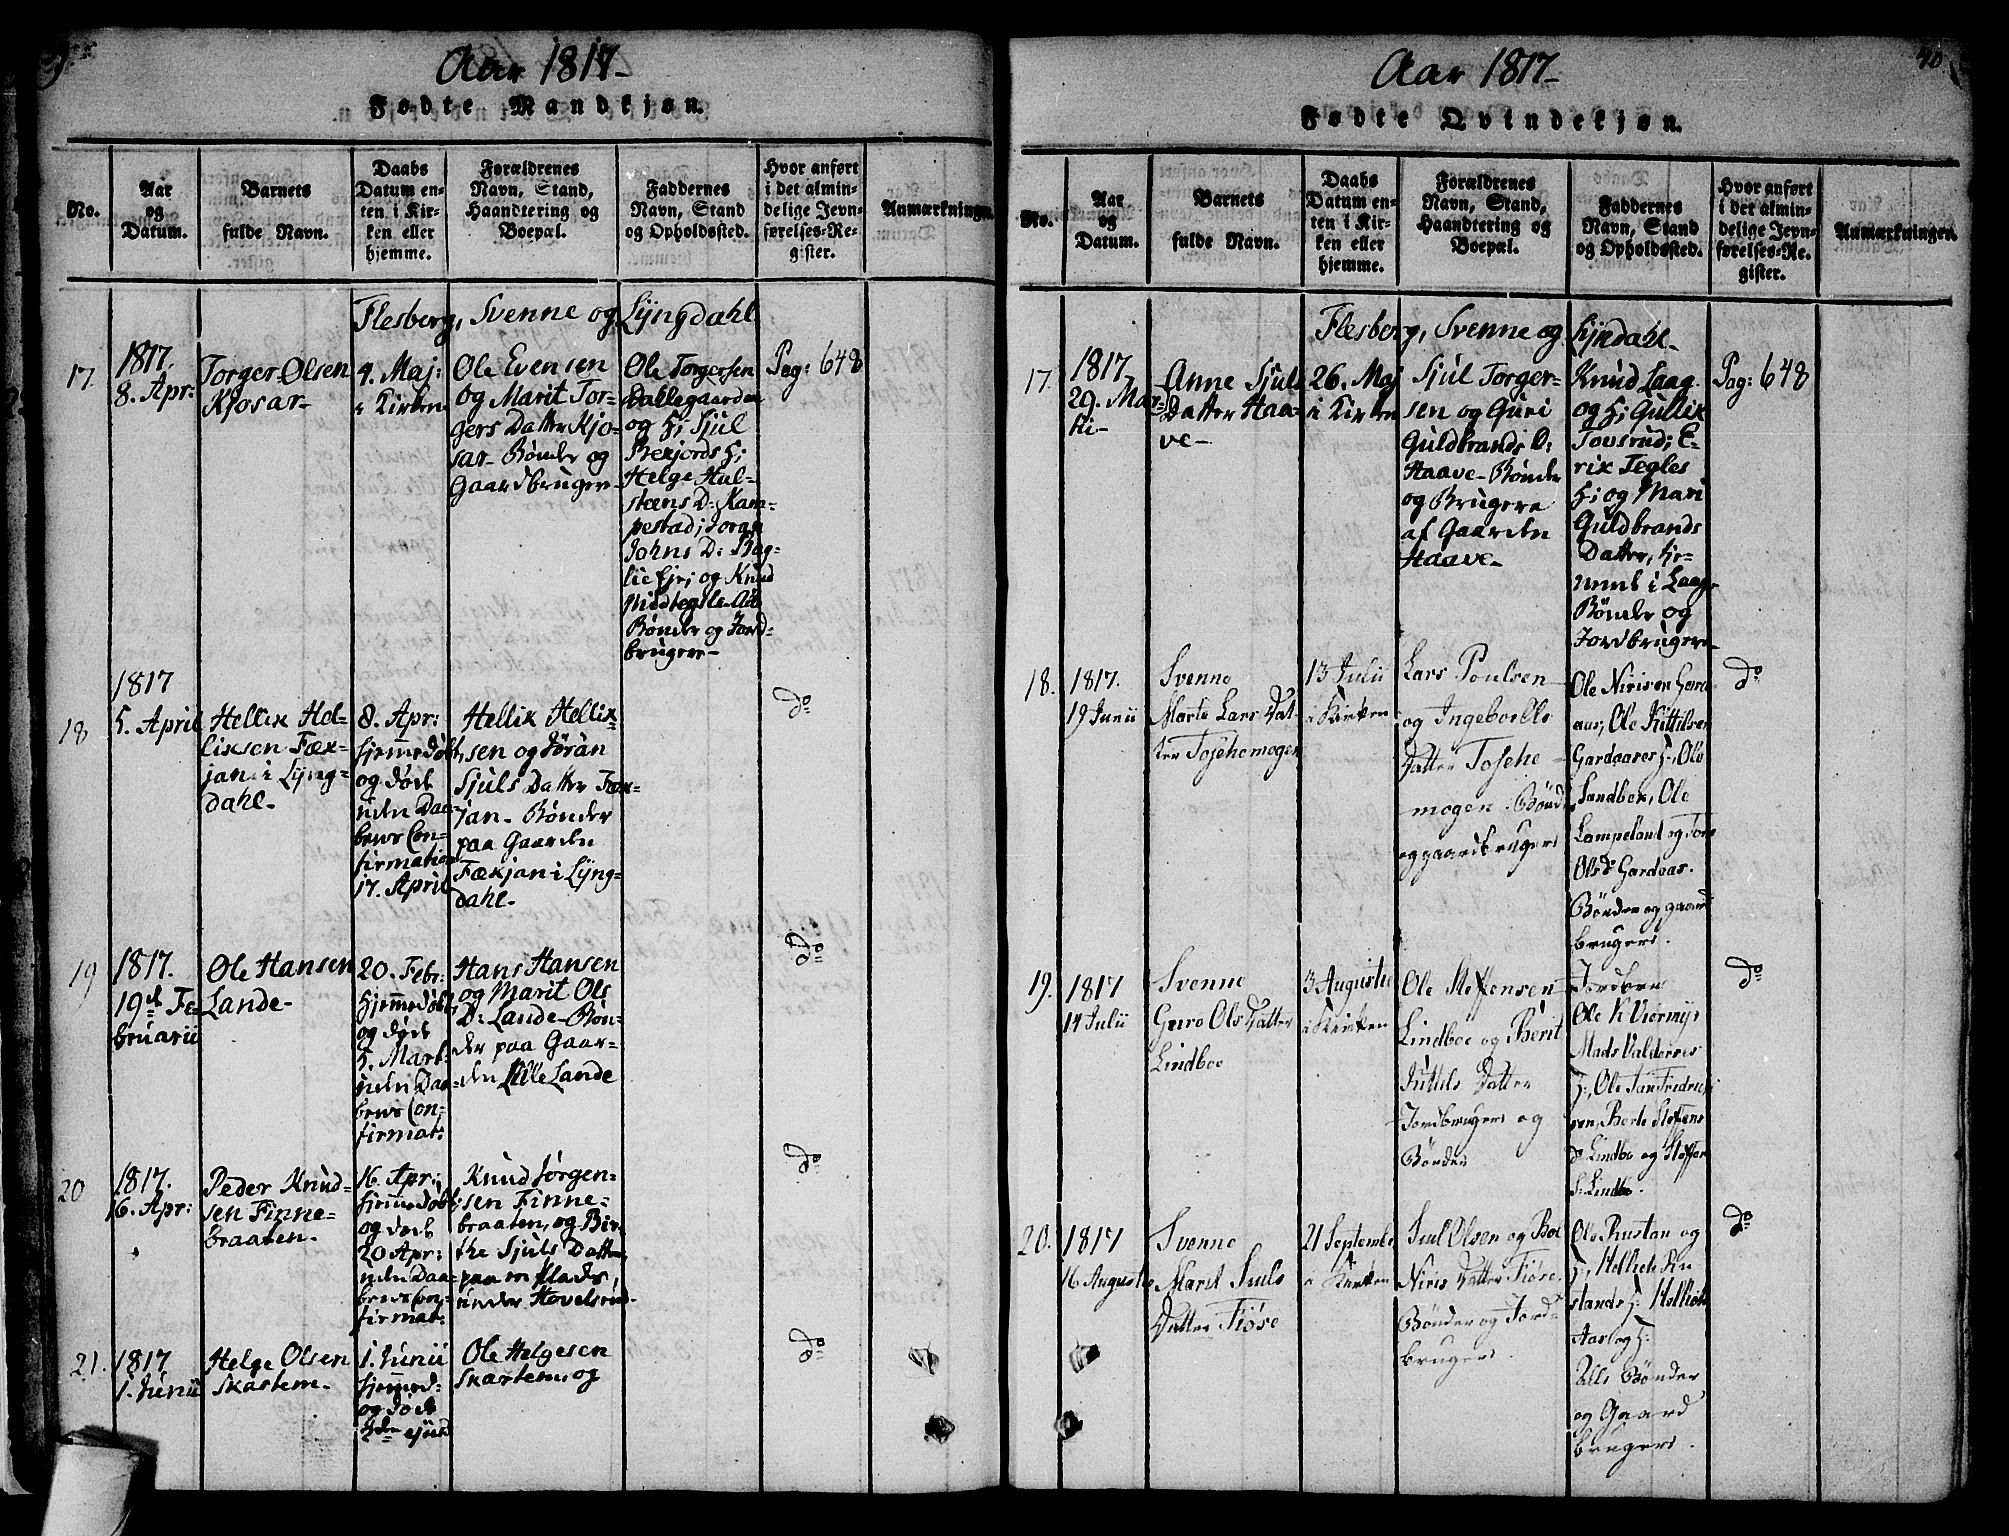 Aar 1817-
Fødte Mandkjøn.
No.
Aar
og
Datum.
Barnets
fulde Navn.
Daabs
Datum en-
ten i Kir-
ken eller
hjemme.
Forældrenes
Navn, Stand,
Haandtering og
Boepæl.
Faddernes
Navn, Stand
og Opholdssted.
Hvor anført
i det almin-
delige Jevn-
førelses-Re-
gister.
Anmærkninger.
Flesberg, Svenne og Lyngdahl
17.
1817.
8. Apr:
Torger Olsen
Kjosar-
4. Maj:
i Kirken
Ole Evensen
og Marit Tor-
gers Datter Kjo-
sar- Bønder og
Gaardbrugere-
Ole Torgersen
Dallegaarden
og H; Sjul
Bekjords H;
Helge Hul-
stæns D: Kam-
pestad; Joran
Johns D: Bag-
lie Eje; og Knud
Midtegsle- Alle
Bønder og Jord-
brugere-
Pag: 648
18
1817
5. April
Hellix Hel-
lixsen Fæx-
jan i Lyng-
dahl-
8. Apr:
hjemedøbt,
og død
uden Daa-
bens Con-
firmation
17. April
Hellix Hellix-
sen og Jöran
Sjuls Datter Fæx-
jan- Bønder
paa Gaarden
Fæxjan i Lyng-
dahl-
do
19
1817.
19d Fe-
bruarii
Ole Hansen
Lande-
20. Febr:
hjemedøbt
og død
5. Mart:
uden Daa-
bens Con-
firmat:
Hans Hansen
og Marit Ols
D: Lande- Bøn-
der paa Gaar-
den Lille Lande
do
20
1817.
16. Apr:
Peder Knud-
sen Finne-
braaten-
16. Apr:
hjemedøbt
og død
20 Apr:
uden Daa-
bens Con-
firmat:
Knud Jørgen-
sen Finne-
braaten, og Bir-
the Sjuls Datter
paa en Plads,
under Hovelsrud-
do
21.
1817
1. Junii
Helge Olsen
Skartem-
1. Junii
hjemed-
og død
ejusd
Ole Helgesen
Skartem, og
do
Aar 1817-
40
Fødte Qvindekjøn.
No.
Aar
og
Datum.
Barnets
fulde Navn.
Daabs
Datum en-
ten i Kir-
ken eller
hjemme.
Forældrenes
Navn, Stand,
Haandtering og
Boepæl.
Faddernes
Navn, Stand
og Opholdssted.
Hvor anført
i det almin-
delige Jevn-
førelses-Re-
gister.
Anmærkninger.
Flesberg, Svenne og Lyndahl-
17.
1817.
29. Mar-
ti-
Anne Sjuls
Datter Haa-
ve-
26. Maj
i Kirken
Sjul Torger-
sen og Guri
Guldbrands D:
Haave- Bønder
og Brugere
af Gaarden
Haave-
Knud Laag
og H; Gullik
Tovsrud; E-
rik Tegles
H; og Mari
Guldbrands
Datter,
i Laag-
Bønder og
Jordbrugere-
Pag: 648
18.
1817.
19 Junii
Svenne
Marte Lars Dat-
ter Tosehemogen
13 Julii
i Kirken
Lars Poulsen
og Ingeborg
Datter Tosehe-
mogen. Bønder
og gaardbrugere
Ole Nirisen Garda-
aas, Ole Kittilsen
Gardaases H:, Ole
Sandbek, Ole
Lampeland og
Olsdr Gardaas.
Bønder og gaard
brugere.
do
19.
1817
14 Julii
Svenne
Guro Ols Datter
Lindboe
3 Augusti
i Kirken
Ole Steffensen
Lindboe og Berit
Kittils Datter
Jordbrugere og
Bønder
Ole K
Mads
H:, Ole Jan Fredrich-
sen, Berte Steffens
dr Lindbo og Steffen
S: Lindbo.
do
20.
1817
16 Augusti
Svenne
Marit Juuls
Datter Fiøse
21 September
i Kirken
Juul Olsen og
Niris Datter Fiøse
Bønder og Jord-
brugere.
Ole Rustan og
H:, Helliek Ru
stands H: Helliek
Aasl og H:
Alle Bønder
og Gaard
brugere.
do